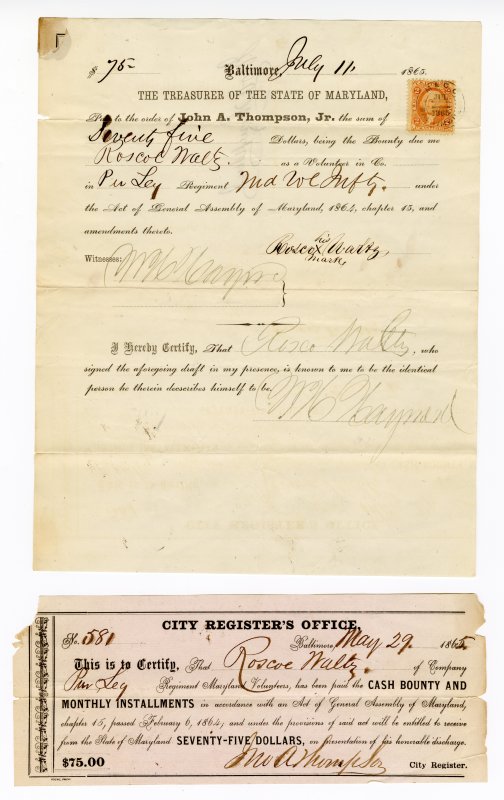 $ 75- Baltimore, July 11, 1865.
THE TREASURER OF THE STATE OF MARYLAND,
Pay to the order of John A. Thompson, Jr. the sum of
Seventy five Dollars, being the Bounty due me
Roscoe Waltz. as a Volunteer in Co.
in Pu Leg Regiment Md Vol Infty. under
the Act of General Assembly of Maryland, 1864, chapter 15, and
amendments thereto.
Roscoe his x mark Waltz
Witnesses:
I Hereby Certify, That Rosco Waltz, who
signed the aforegoing draft in my presence, is known to me to be the identical
person he therein deescribes himself to be.
W H Hayward
CITY REGISTER'S OFFICE,
No. 581 Baltimore, May 29. 1865.
This is to Certify, That Roscoe Waltz. of Company
Pur Leg Regiment Maryland Volunteers, has been paid the CASH BOUNTY AND
MONTHLY INSTALLMENTS in accordance with an Act of General Assembly of Maryland,
chapter 15, passed February 6, 1864; and under the provisions of said act will be entitled to receive
from the State of Maryland SEVENTY-FIVE DOLLARS, on presentation of his honorable discharge.
$75.00 Jno A Thompson City Register.